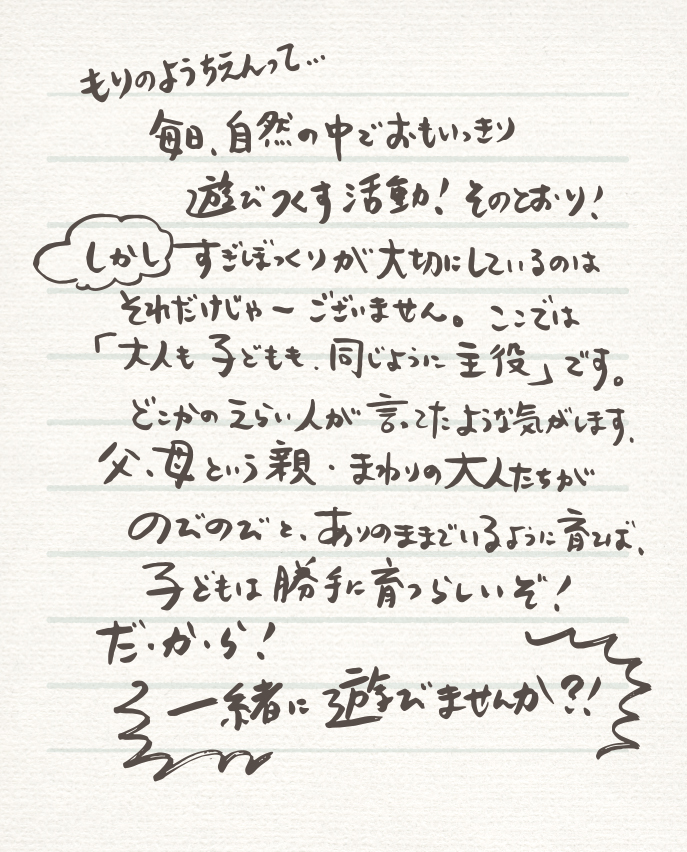 もりのようちえんって…
毎日、自然の中でおもいっきり
遊びつくす活動！そのとおり！
しかし すぎぼっくりが大切にしているのは
それだけじゃーございません。ここでは
「大人も子どもも、同じように主役」です。
どこかのえらい人が言ってたような気がします。
父、母という親・まわりの大人たちが
のびのびと、ありのままでいるように育てば、
子どもは勝手に育つらしいぞ！
だ・か・ら！
一緒に遊びませんか？！